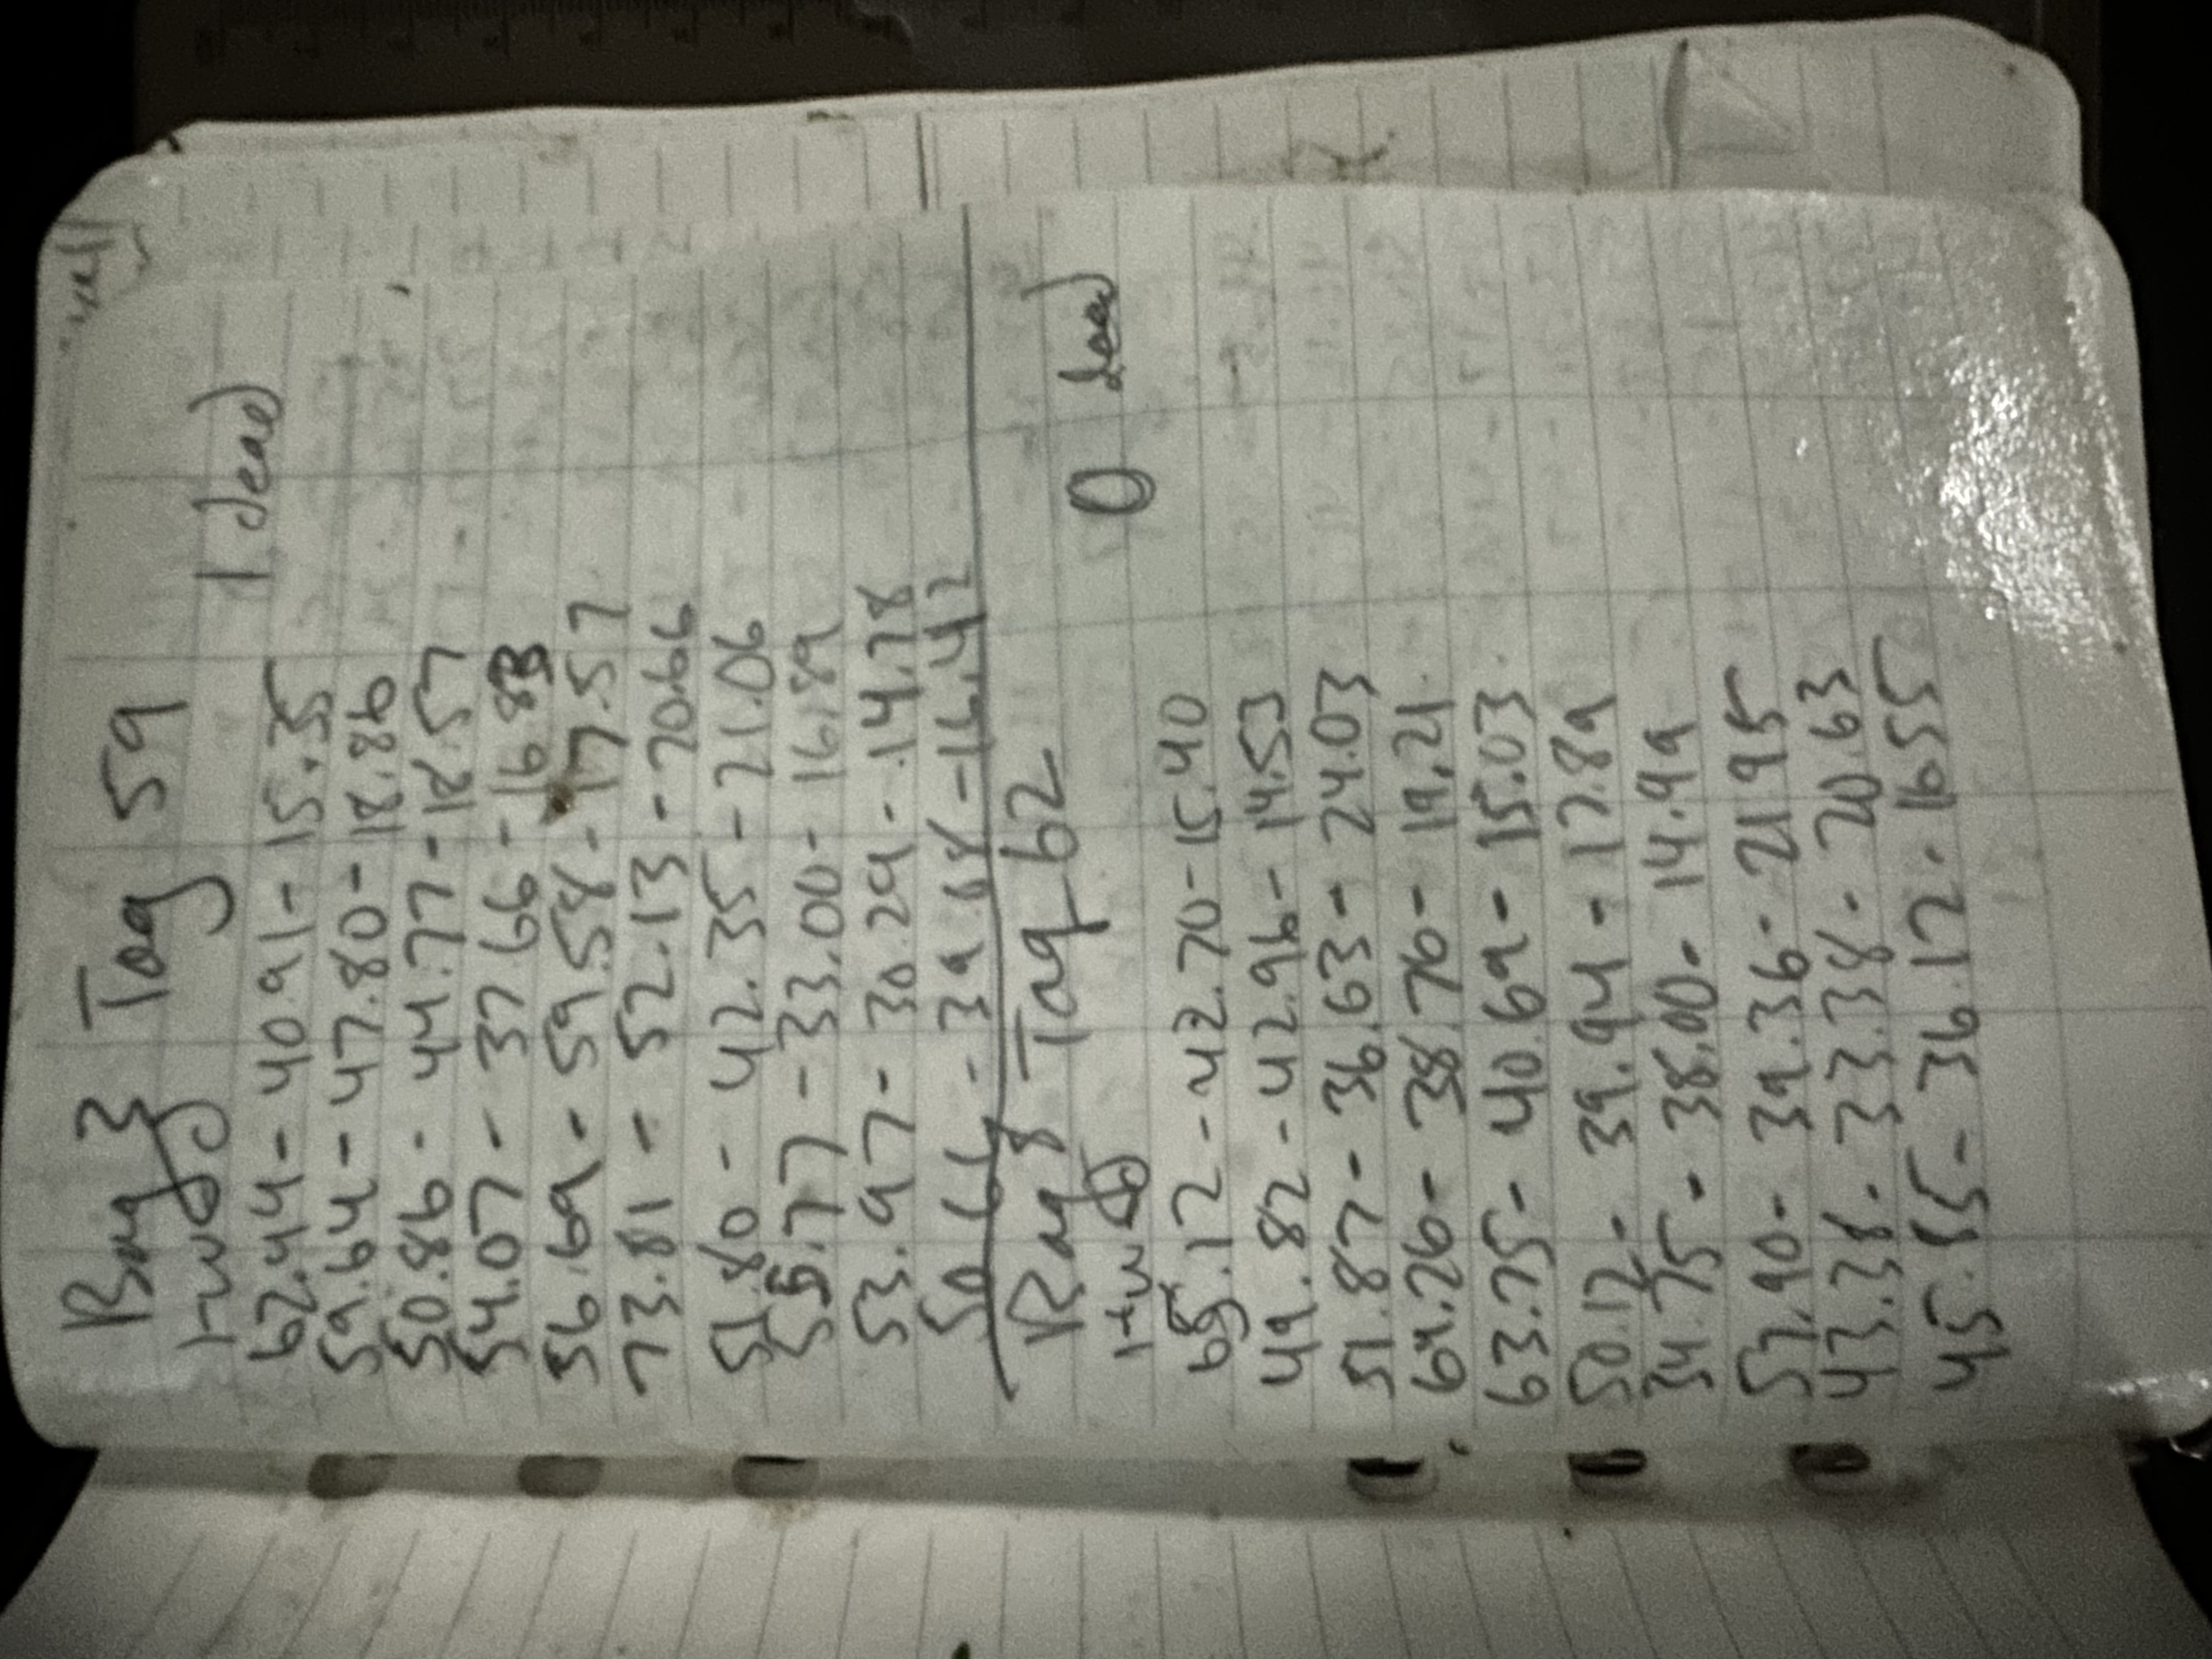 Bag 3 Tag 59
HWD
1 dead
62.44 - 40.91 - 15.35
59.64 - 47.80 - 18.86
50.86 - 44.77 - 18.57
54.07 - 37.66 - 16.83
56.69 - 59.58 - 17.57
73.81 - 52.13 - 20.66
51.80 - 42.35 - 21.06
55.77 - 33.00 - 16.89
53.97 - 30.29 - 14.78
50.66 - 39.68 - 16.42
Bag 8 Tag 62
HWD
0 dead
65.12 - 42.70 - 15.40
49.82 - 42.96 - 14.53
51.87 - 36.63 - 24.03
64.26 - 38.76 - 19.21
63.75 - 40.69 - 15.03
50.12 - 39.94 - 17.89
34.75 - 38.00 - 14.99
57.90 - 39.36 - 21 95
43.38 - 33.38 - 20.63
45.85 - 36.12 - 16 55